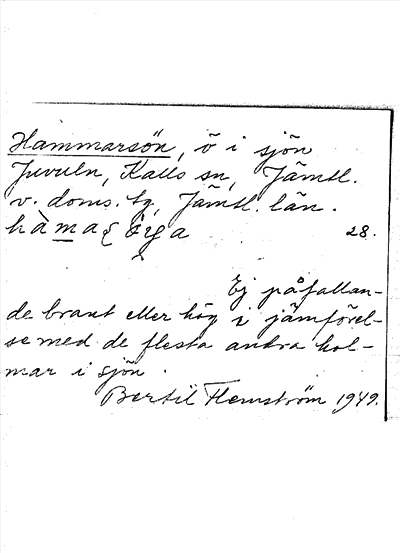 Hammarsön, ö i sjön
Juvuln, Kalls sn, Jämtl.
v. doms. tg, Jämtl. län.
28.
Ej påfallan-
de brant eller hög i jämförel-
se med de flesta andra hol-
mar i sjön.
Bertil Flemström 1949.